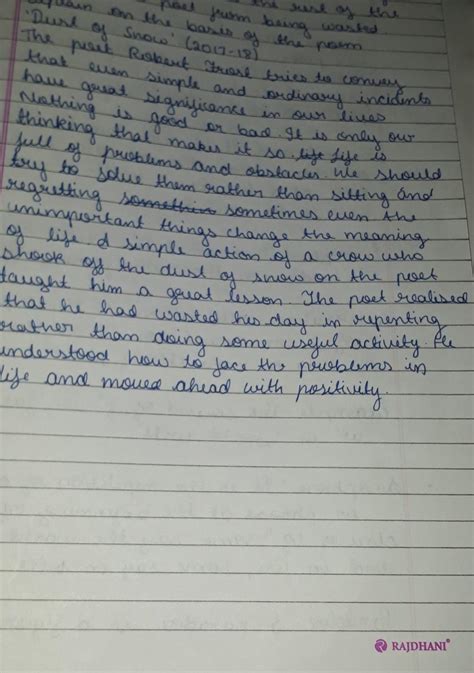 the rest of the
poet from being wasted.
explain on the basis of the poem
'Dust of Snow' (2017-18)
The poet Robert Frost tries to convey
that even simple and ordinary incidents
have great significance in our lives
Nothing is good or bad It is only our
thinking that makes it so. life is
full of problems and obstacles. We should
try to solve them rather than sitting and
regretting sometimes even the
unimportant things change the meaning
of life. A simple action of a crow who
shook off the dust of snow on the poet
taught him a great lesson. The poet realised
that he had wasted his day in repenting
rather than doing some useful activity. He
understood how to face the problems in
life and moved ahead with positivity.
RAJDHANI